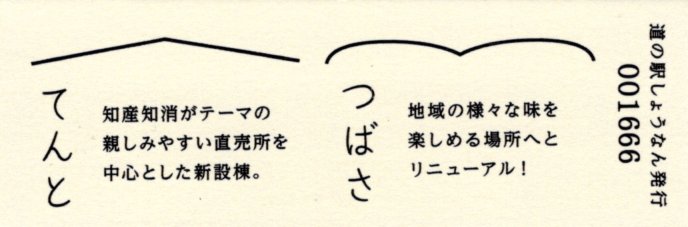 てんと
知産知消がテーマの
親しみやすい直売所を
中心とした新設棟。
つばさ
地域の様々な味を
楽しめる場所へと
リニューアル！
道の駅しょうなん発行
001666